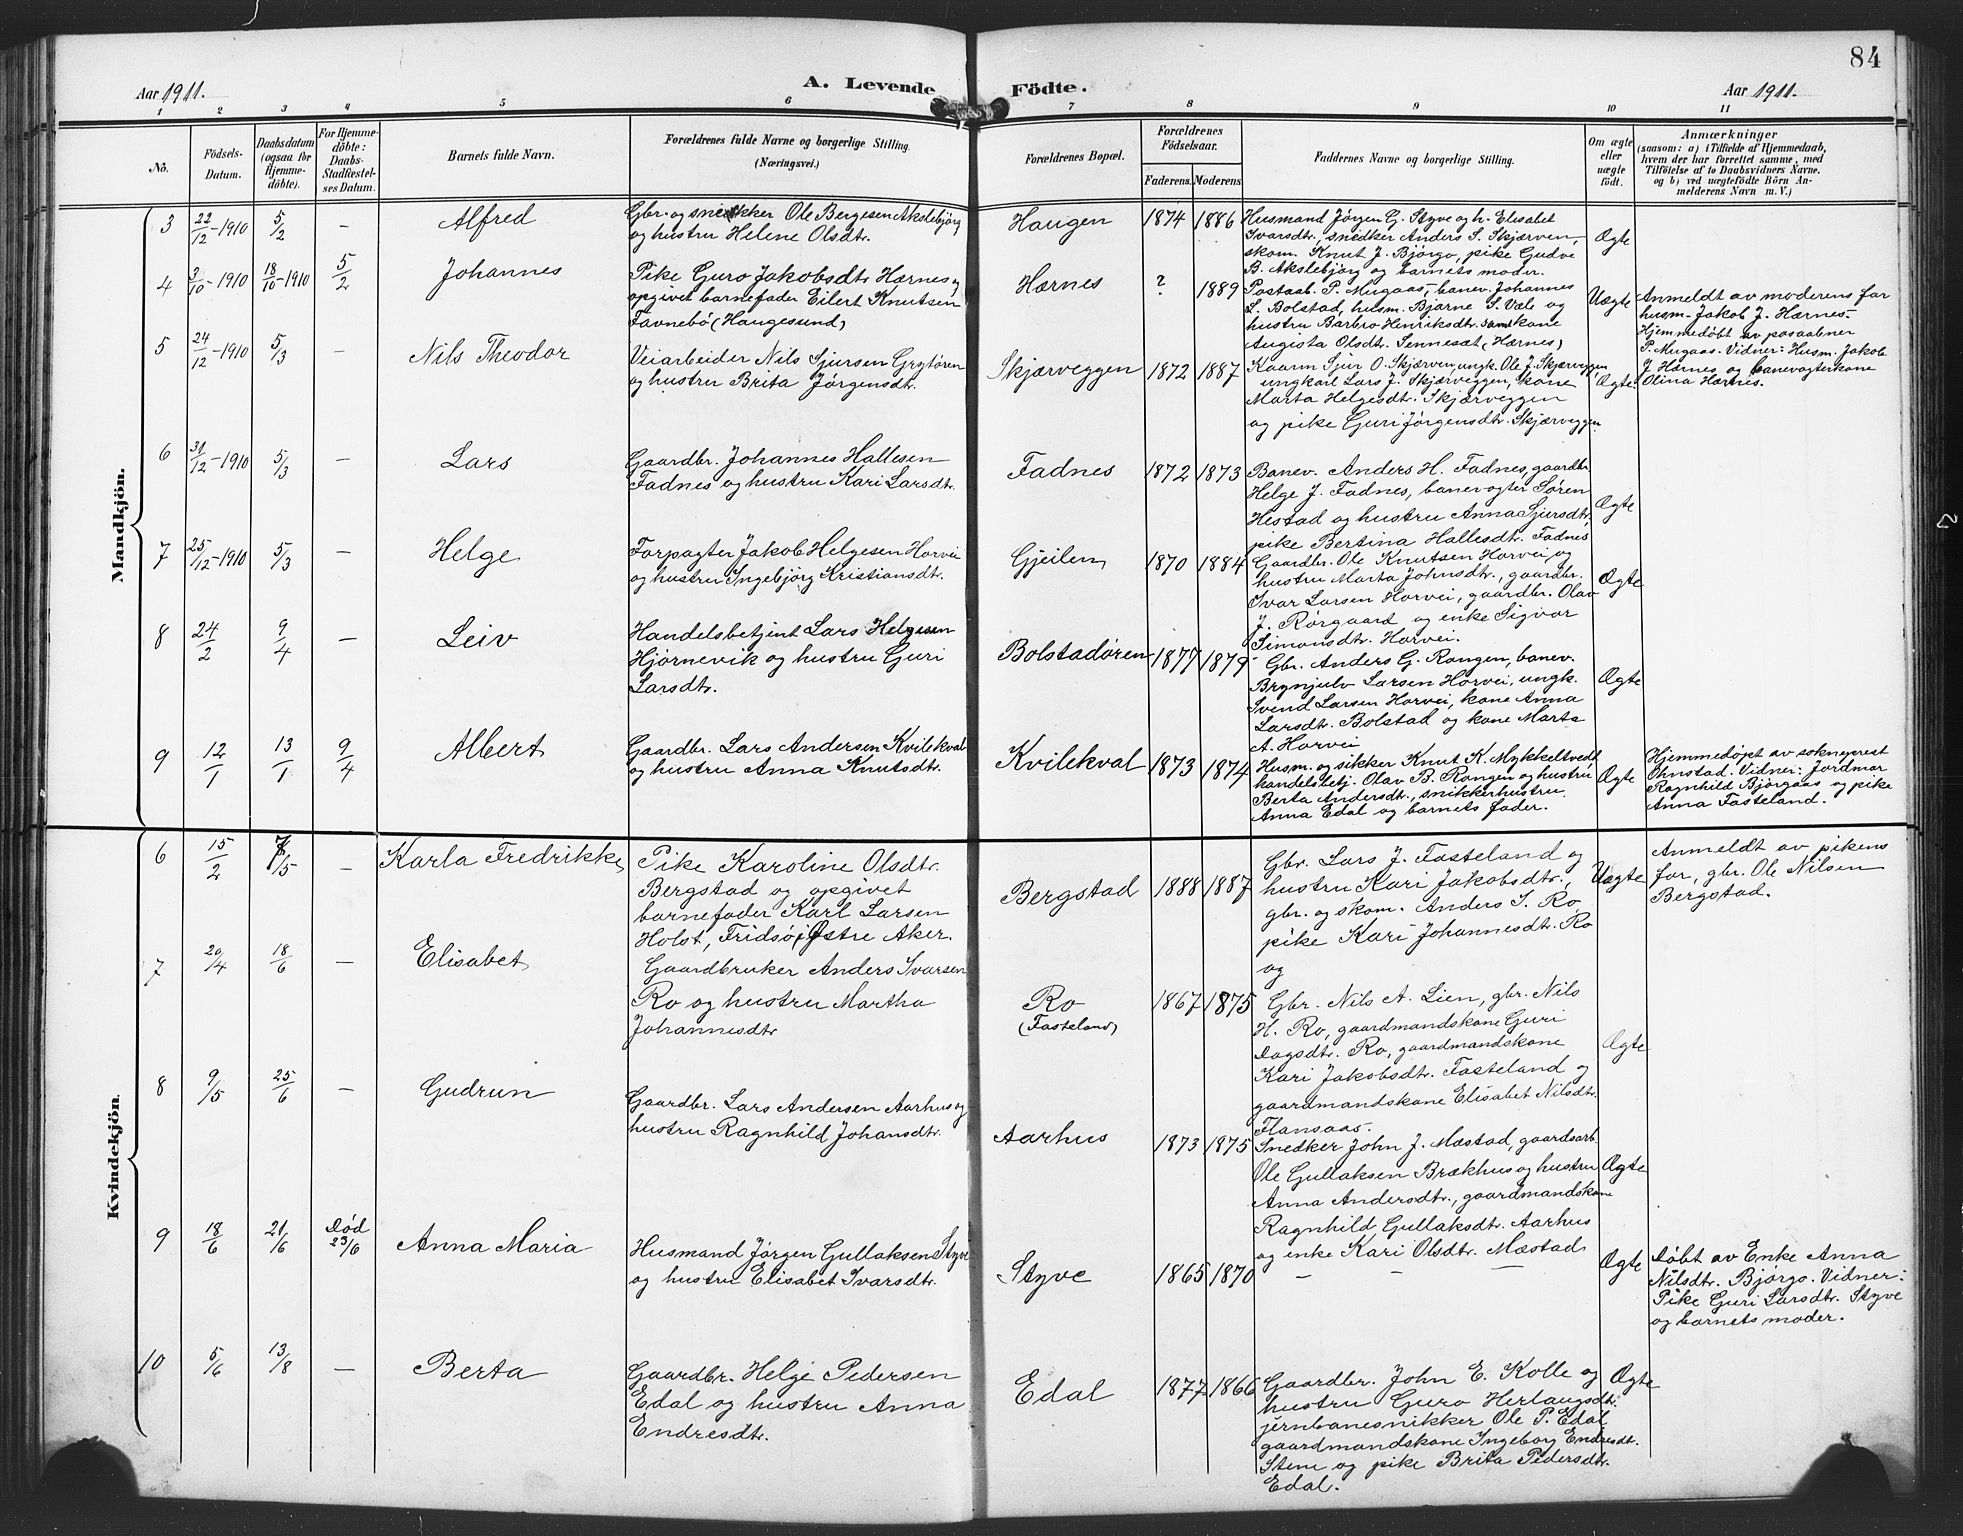 84
Aar 1911.
A. Levende
Födte.
Aar 1911.
1 2 3 4 5 6 7 8 9 10 11
No.
Födsels-
Datum.
Daabsdatum
(ogsaa for
Hjemme-
döbte).
For Hjemme-
döbte:
Daabs-
Stadfæstel-
ses Datum.
Barnets fulde Navn.
Forældrenes fulde Navne og borgerlige Stilling.
(Næringsvei.)
Forældrenes Bopæl.
Forældrenes
Födselsaar.
Faderens.
Moderens
Faddernes Navne og borgerlige Stilling.
Om ægte
eller
uægte
födt.
Anmærkninger
(saasom: a) i Tilfælde af Hjemmedaab,
hvem der har forrettet samme, med
Tilföielse af to Daabsvidners Navne.
og b) ved uægtefödte Börn An-
melderens Navn m. V.)
Mandkjön.
3 22/12-1910 5/2 — Alfred
Gbr. og snekker Ole Bergesen Akslebjørg
og hustru Helene Olsdtr.
Haugen 1874 1886
Husmand Jørgen G. Styve og h. Elisabet
Ivarsdtr., snedker Anders S. Skjærven,
skom. Knut J. Bjørgo, pike Gudve
B. Akslebjørg og barnets moder.
Ægte
4 3/10-1910 18/10-1910 5/2 Johannes
Pike Guro Jakobsdtr Hærnes og
opgivet barnefader Eilert Knutsen
Favnebö (Haugesund)
Hærnes ? 1889
Postaab. P. Mugaas, banev. Johannes
L. Bolstad, husm. Bjarne S. Væle og
hustru Barbro Henriksdtr. samt kone
Augista Olsdtr. Tennesæt (Hærnes)
Uægte
Anmeldt av moderens far
husm. Jakob J. Hærnes-
Hjemmedøbt av posaabner
P. Mugaas. Vidner: Husm. Jakob
J. Hærnes og banevogterkone
Olina Hærnes.
5 24/12-1910 5/3 — Nils Theodor
Veiarbeider Nils Sjursen Grytøren
og hustru Brita Jørgensdtr.
Skjærveggen 1872 1887
Kaarm Sjur O. Skjærven, ungk. Ole J. Skjærveggen,
ungkarl Lars J. Skjærveggen, kone
Marta Helgesdtr. Skjærveggen
og pike Guri Jørgensdtr. Skjærveggen.
Ægte.
6 31/12-1910 5/3 — Lars
Gaardbr. Johannes Hallesen
Fadnes og hustru Kari Larsdtr.
Fadnes 1872 1873
Banev. Anders H. Fadnes, gaardbr
Helge J. Fadnes, banevogter Søren
Hestad og hustru Anna Sjursdtr,
pike Bertina Hallesdtr. Fadnes
Ægte
7 25/12-1910 5/3 — Helge
Forpagter Jakob Helgesen Horvei
og hustru Ingebjörg Kristiansdt.
Gjeilen 1870 1884
Gaardbr. Ole Knutsen Horvei, og
hustru Marta Johnsdtr., gaardbr.
Ivar Larsen Horvei, gaardbr. Olav
J. Rørgaard og enke Sigvor
Simonsdtr. Horvei.
Ægte
8 24/2 9/4 — Leiv
Handelsbetjent Lars Helgesen
Hjørnevik og hustru Guri
Larsdtr.
Bolstadøren 1877 1879
Gbr. Anders G. Rongen, banev.
Brynjulv Larsen Horvei, ungk.
Svend Larsen Horvei, kone Anna
Larsdtr. Bolstad og kone Marta
A. Horvei
Ægte
9 12/1 13/1 9/4 Albert
Gaardbr. Lars Andersen Kvilekval
og hustru Anna Knutsdtr.
Kvilekval 1873 1874
Husm. og sikker Knut K. Mykkeltvedt
handelsbetj. Olav B. Rongen og hustru
Berta Andersdtr., snikkerhustru.
Anna Edal og barnets fader.
Ægte
Hjemmedøpt av sokneprest
Ohnstad. Vidner: Jordmor
Ragnhild Bjørgaas og pike
Anna Fasteland.
Kvindekjön.
6 15/2 7/5 — Karla Fredrikke
Pike Karoline Olsdtr.
Bergstad og opgivet
barnefader Karl Larsen
Holst, Fridsø, Østre Aker.
Bergstad 1888 1887
Gbr. Lars J. Fasteland og
hustru Kari Jakobsdtr.,
gbr. og skom. Anders S. Ro,
pike Kari Johannesdtr. Ro
og
Uægte
Anmeldt av pikens
far, gbr. Ole Nilsen
Bergstad.
7 20/4 18/6 — Elisabet
Gaardbruker Anders Ivarsen
Ro og hustru Martha
Johannesdtr
Ro
(Fasteland)
1867 1875
Gbr. Nils A. Lien, gbr. Nils
H. Ro, gaardmandskone Guri
Dagsdtr. Ro, gaardmandskone
Kari Jakobsdtr. Fasteland og
gaardmandskone Elisabet Nilsdtr.
Flansaas.
Ægte
8 9/5 25/6 — Gudrun
Gaardbr. Lars Andersen Aarhus og
hustru Ragnhild Johansdtr.
Aarhus 1873 1875
Snedker John J. Mæstad, gaardsarb.
Ole Gullaksen Brækhus og hustru
Anna Andersdtr., gaardmandskone
Ragnhild Gullaksdtr. Aarhus
og enke Kari Olsdtr. Mæstad
Ægte
9 18/6 21/6 Död 23/6 Anna Maria
Husmand Jørgen Gullaksen Styve
og hustru Elisabet Ivarsdtr.
Styve 1865 1870 — — —
Ægte
Døbt av Enke Anna
Nilsdtr. Bjørgo. Vidner:
Pike Guri Larsdtr. Styve
og barnets moder.
10 5/6 13/8 — Berta
Gaardbr. Helge Pedersen
Edal og hustru Anna
Endresdtr.
Edal 1877 1866
Gaardbr. John E. Kolle og
hustru Guro Herlaugsdtr.
jernbanesnikker Ole P. Edal
gaardmandskone Ingeborg Endresdt.
Stene og pike Brita Pedersdtr.
Edal.
Ægte